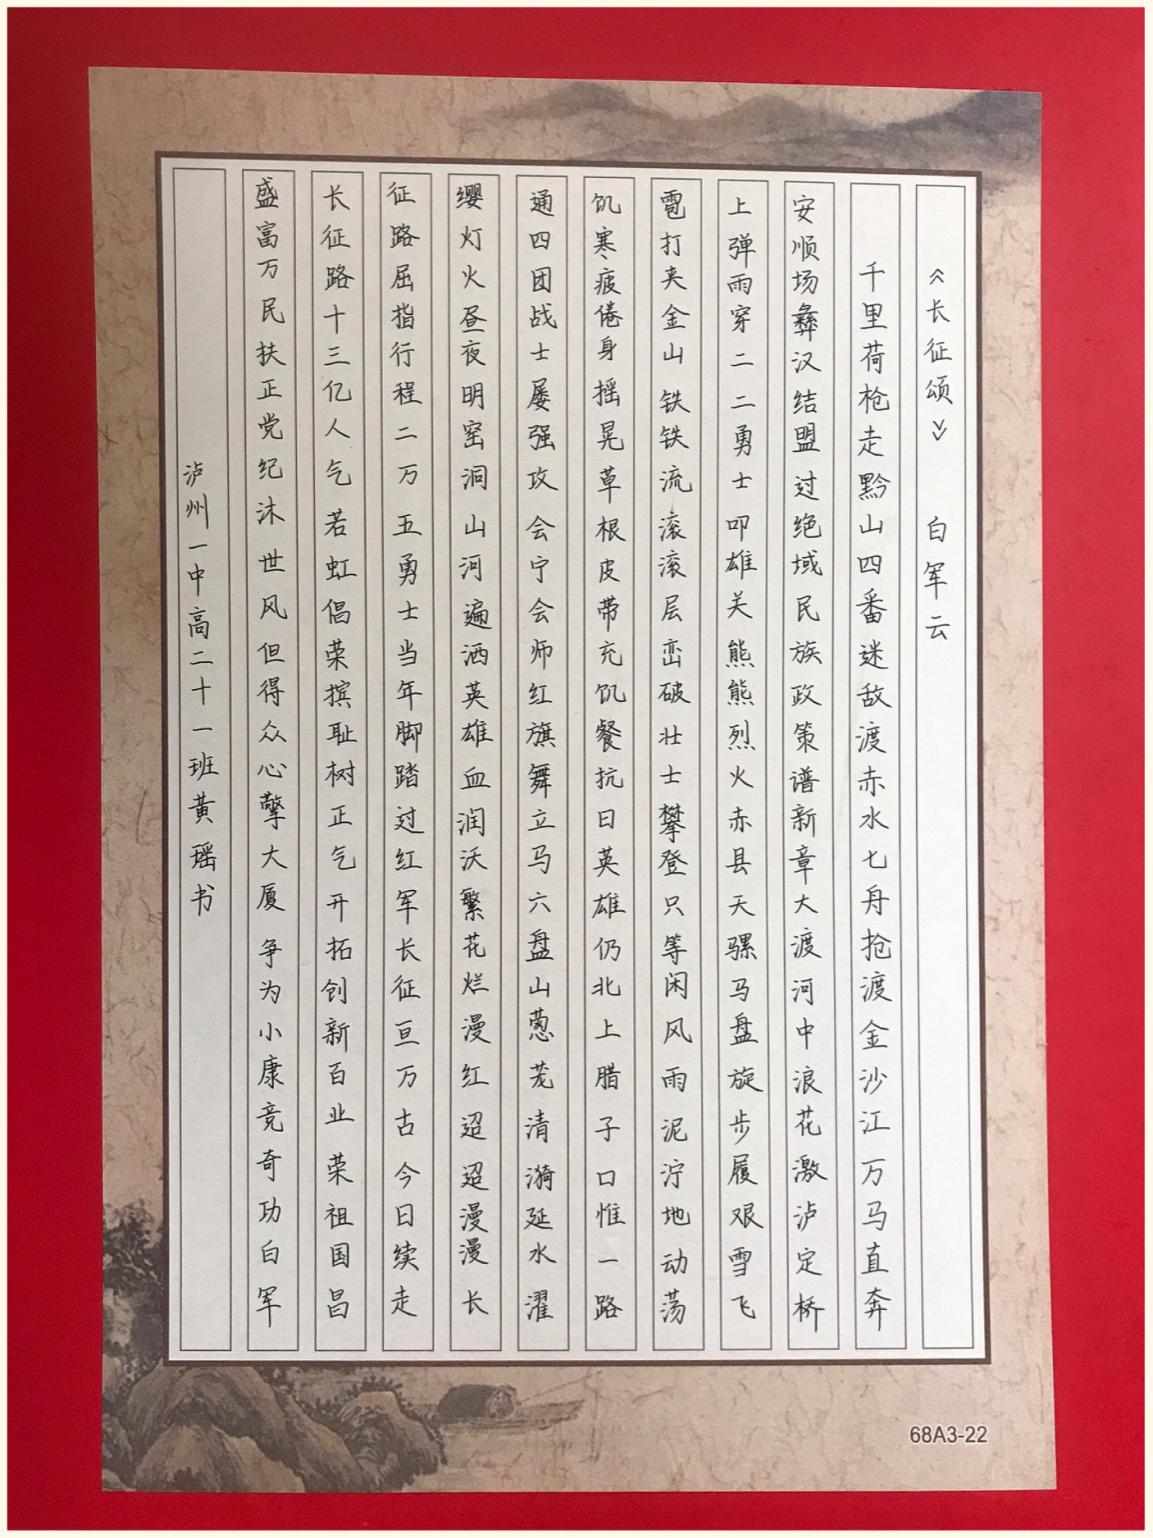 《长征颂》 白军云
千里荷枪走黔山四番迷敌渡赤水七舟抢渡金沙江万马直奔
安顺场彝汉结盟过绝域民族政策谱新章大渡河中浪花激泸定桥
上弹雨穿二二勇士叩雄关熊熊烈火赤县天骡马盘旋步履艰雪飞
雹打夹金山铁铁流滚滚层峦破壮士攀登只等闲风雨泥泞地动荡
饥寒疲倦身摇晃草根皮带充饥餐抗日英雄仍北上腊子口惟一路
通四团战士屡强攻会宁会师红旗舞立马六盘山葱茏清漪延水濯
缨灯火昼夜明窑洞山河遍洒英雄血润沃繁花烂漫红迢迢漫漫长
征路屈指行程二万五勇士当年脚踏过红军长征亘万古今日续走
长征路十三亿人气若虹倡荣摈耻树正气开拓创新百业荣祖国昌
盛富万民扶正党纪沐世风但得众心擎大厦争为小康竞奇功白军
泸州一中高二十一班黄瑶书
68A3-22